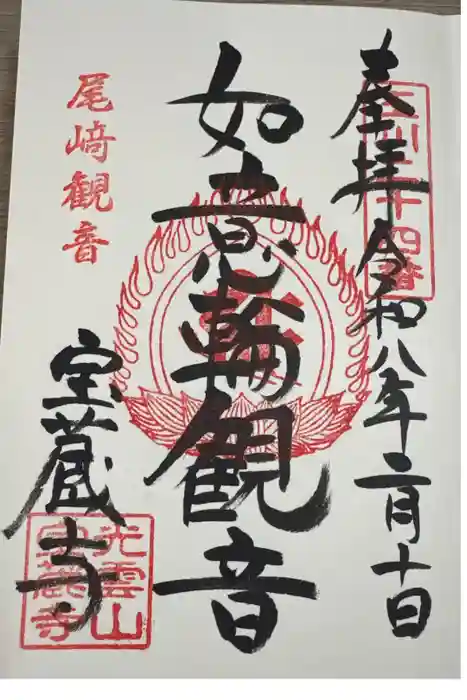 奉拝 令和八年二月十日
三川三十四番
如意輪観音
尾﨑観音
宝蔵寺
光雲山宝蔵寺